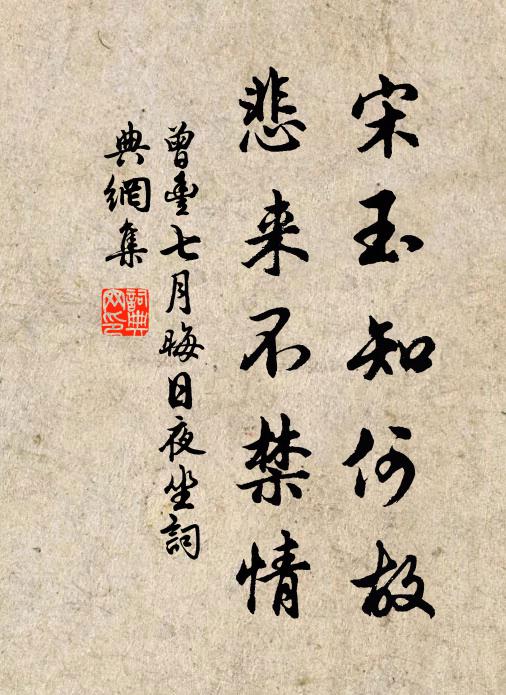 宋玉知何故
悲来不禁情
曾豐七月晦日夜坐詞
典網集
詞典
网印